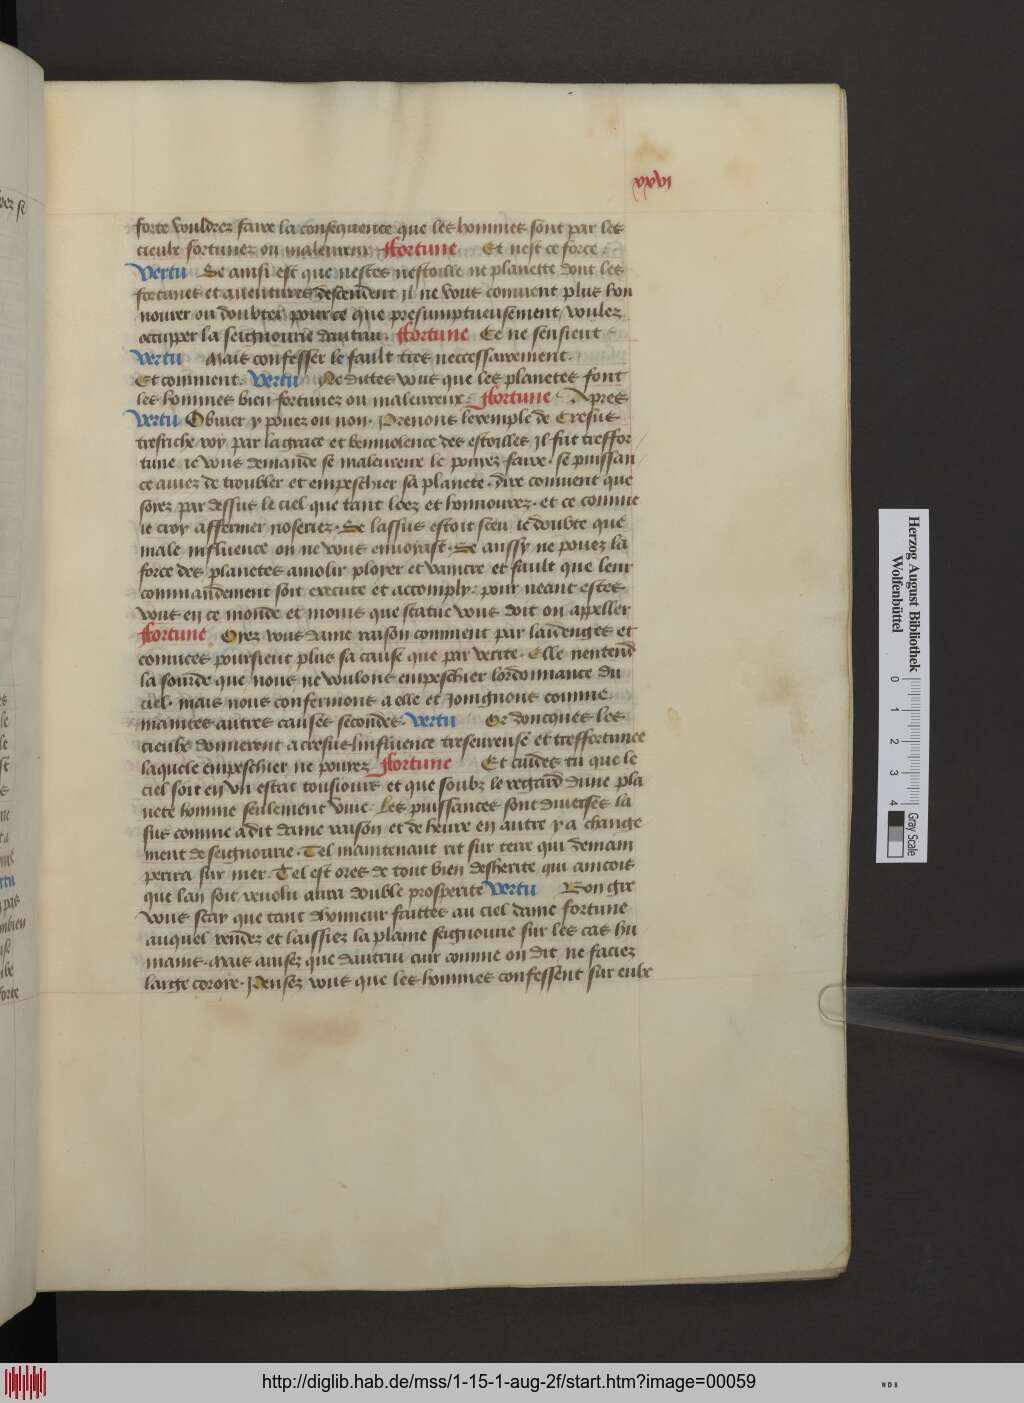 xxvi
forte vouldrez faire la consequence que les hommes sont par les
cieulx fortunez ou maleureux Ffortune Et nest ce force
Vertu Se ainsi est que nestes nestoille ne planette dont les
fortunes et auentures descendent il ne vous conuient plus hon
nourer ou doubter pour ce que presumptueusement voulez
occupper la seignourie dautruy. Ffortune Ce ne sensieut
Vertu Mais confesser le fault tres neccessairement.
Et comment. Vertu Ne dittes vous que les planetes font
les hommes bien fortunez ou maleureux. Ffortune Apres
Vertu Obuier y pouez ou non. Prenons lexemple de Cresus
tresriche roy par la grace et beniuolence des estoilles il fut treffor
tune ie vous demande se maleureux le pouez faire. se puissan
ce auiez de troubler et empeschier sa planete. dire conuient que
soyez par dessus le ciel que tant loez et honnourez. et ce comme
ie croy affermer noseriez. Se lassus estoit sceu ie doubte que
male influence on ne vous enuoyast. Se aussy ne pouez la
force des planetes amolir ployer et vaincre et fault que leur
commandement soit execute et accomply. pour neant estes
vous en ce monde et moins que statue vous doit on appeller
Ffortune Oyez vous dame raison comment par laidenges et
conuices poursieut plus sa cause que par verite. Elle nentend
la sourde que nous ne voulons empeschier lordonnance du
ciel. mais nous confermons a elle et joingnons comme
maintes autres causes secondes. Vertu Or doncques les
cieulx donnerent a cresus linfluence treseureuse et treffortunee
laquele empeschier ne pouez Ffortune Et cuides tu que le
ciel soit en vn estat tousiours et que soubz le regard dune pla
nete homme seulement viue. Les puissances sont diuerses la
sus comme a dit dame raison et de heure en autre y a change
ment de seignourie. Tel maintenant rit sur terre qui demain
perira sur mer. Tel est ores de tout bien desherite qui aincois
que lan soit reuolu aura double prosperite Vertu Bon gre
vous scay que tant dhonneur faittes au ciel dame fortune
auquel rendez et laissiez la plaine seignourie sur les cas hu
mains. Mais auisez que dautrui cuir comme on dit ne faciez
large coroye. Pensez vous que les hommes confessent sur eulx
Herzog August Bibliothek
Wolfenbüttel
0 1 2 3 4
Gray Scale
http://diglib.hab.de/mss/1-15-1-aug-2f/start.htm?image=00059